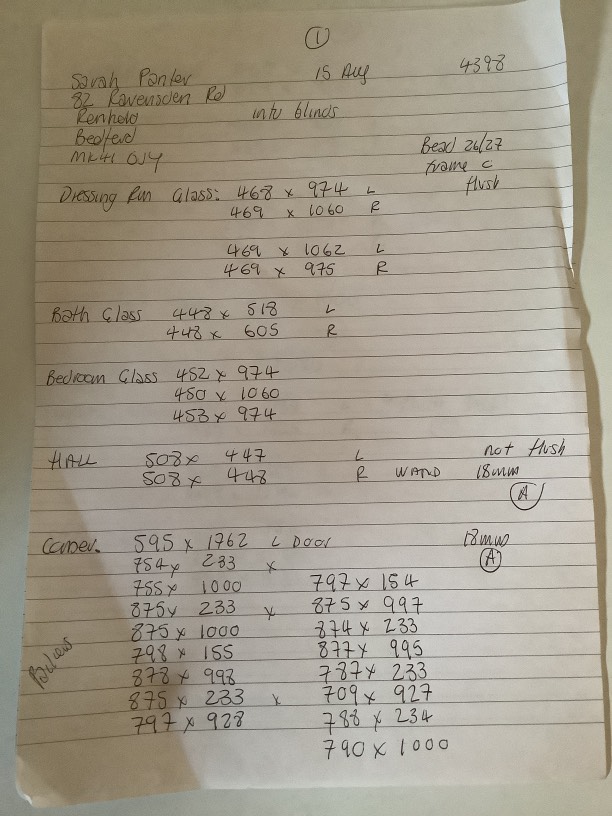 1
Sarah Panter 15 Aug 4398
82 Ravensden Rd
Renhold into blinds
Bedford
MK41 0JY Bead 26/27
frame c
flush
Dressing Rm Glass: 468 x 974 L
469 x 1060 R
469 x 1062 L
469 x 975 R
Bath Glass 448 x 518 L
448 x 605 R
Bedroom Glass 452 x 974
450 x 1060
453 x 974
HALL 508 x 447 L not flush
508 x 448 R WAND 18mm
A
Conser. 595 x 1762 L Door 18mm
754 x 233 x A
755 x 1000 797 x 154
875 x 233 x 875 x 997
875 x 1000 874 x 233
798 x 155 877 x 995
878 x 998 787 x 233
875 x 233 x 709 x 927
797 x 928 788 x 234
790 x 1000